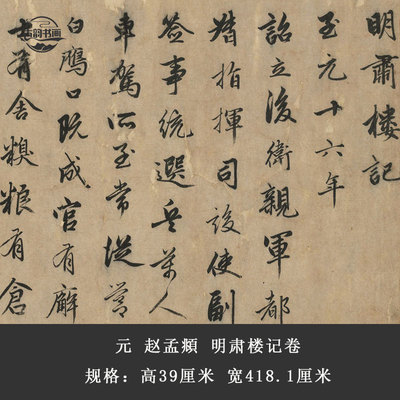 古韵书画
明肅樓記
至元十六年
詔立後衛親軍都
指揮司設使副
簽事統選兵萬人
車駕所至常從營
白鴈口既成官有廨
士有舍糗糧有倉
元 赵孟頫 明肃楼记卷
规格：高39厘米 宽418.1厘米